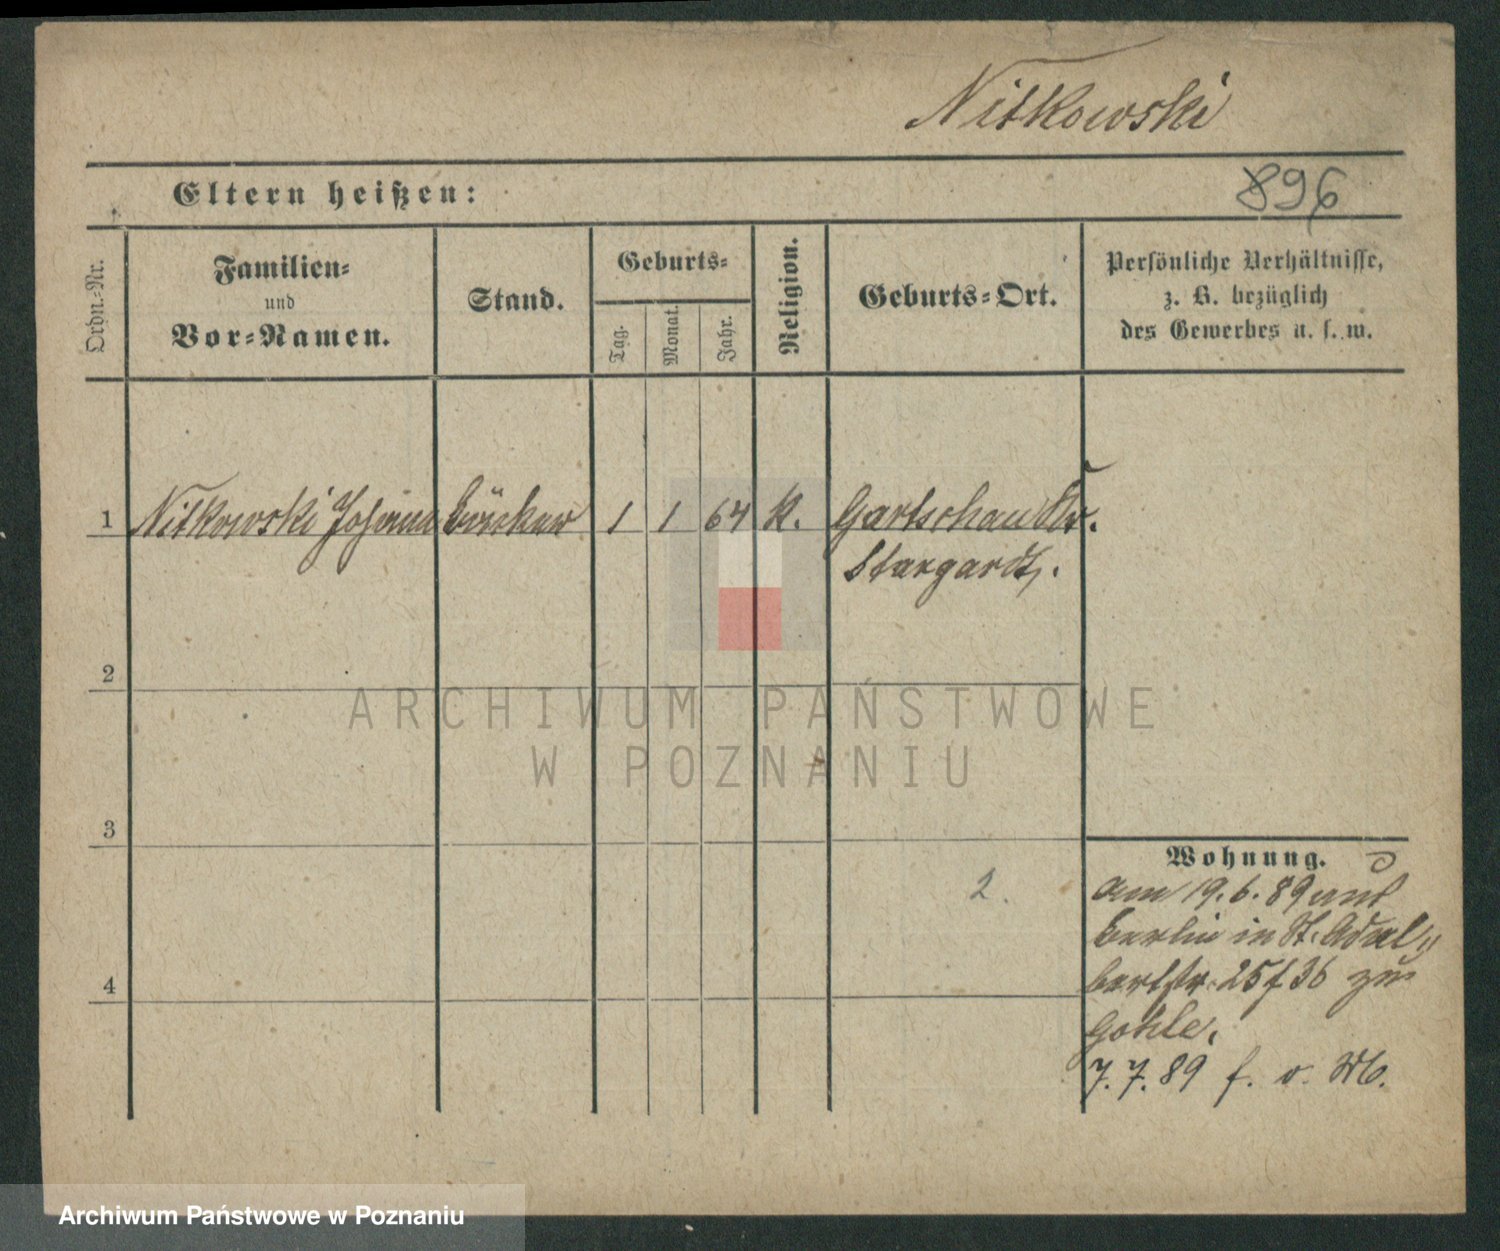 Nitkowski
Eltern heißen:
896
Ordn.-Nr.
Familien-
und
Vor-Namen.
Stand.
Geburts-
Tag.
Monat.
Jahr.
Religion.
Geburts-Ort.
Persönliche Verhältnisse,
z. B. bezüglich
des Gewerbes u. s. w.
1 Nitkowski Johann bäcker 1 1 64 K. Gartschau Kr.
Stargardt.
2
3
4
2.
Wohnung.
am 19. 6. 89 aus
Berlin in St. Adal„
bertstr. 25/36 zu
Gohle.
7. 7. 89 f. v.
ARCHIWUM PAŃSTWOWE
W POZNANIU
Archiwum Państwowe w Poznaniu